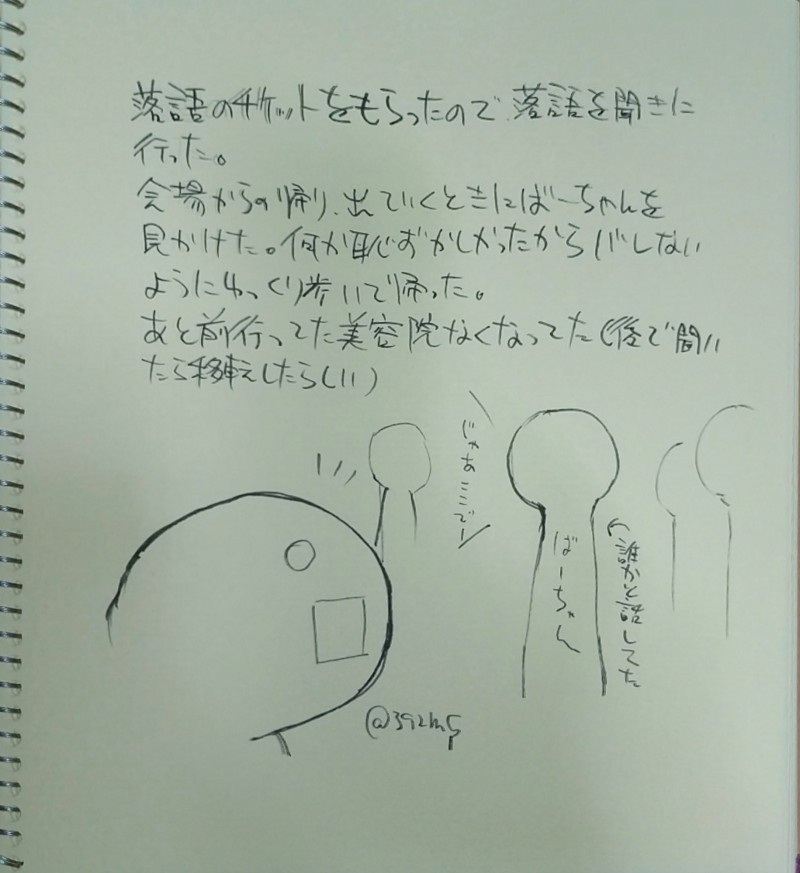 落語のチケットをもらったので、落語を聞きに
行った。
会場からの帰り、出ていくときにばーちゃんを
見かけた。何か恥ずかしかったからバレしない
ようにゆっくり歩いて帰った。
あと前行ってた美容院なくなってた(後で聞い
たら移転したらしい)
じゃあここでー
ばーちゃん
誰かと話してた